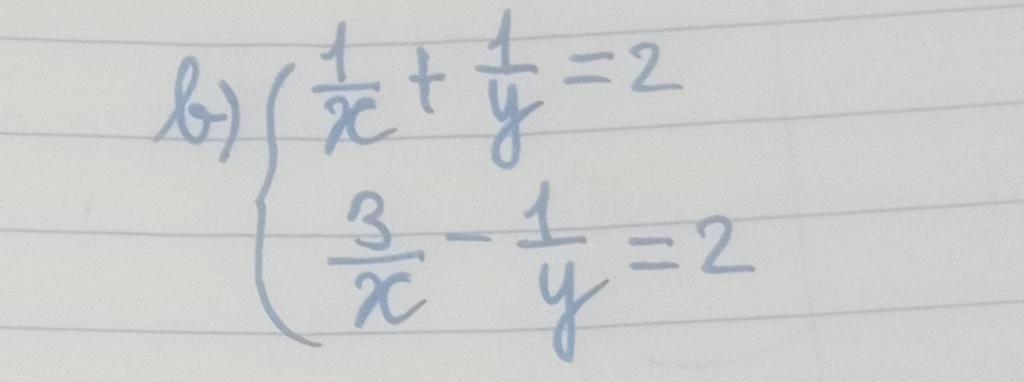 b) { 1/x + 1/y = 2
3/x - 1/y = 2